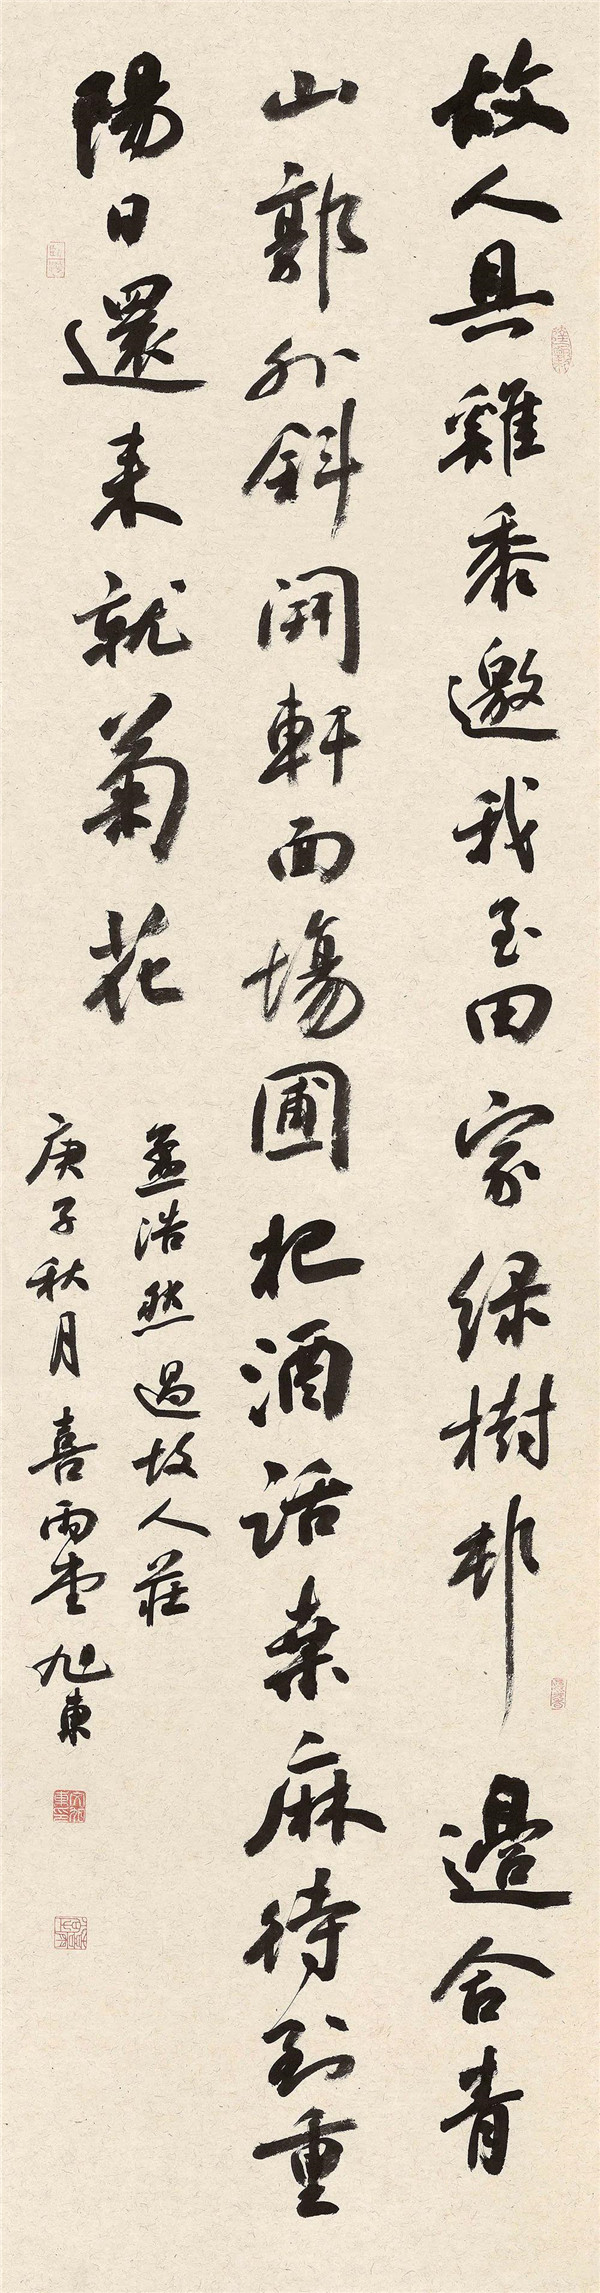 故人具雞黍邀我至田家绿樹邨邊合青
山郭外斜開軒面場圃把酒話桑麻待到重
陽日還来就菊花
孟浩然過故人莊
庚子秋月喜雨堂旭東